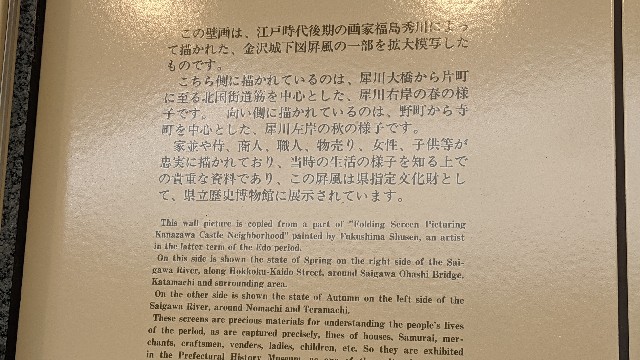 この壁画は、江戸時代後期の画家福島秀川によっ
て描かれた、金沢城下図屏風の一部を拡大模写した
ものです。
こちら側に描かれているのは、犀川大橋から片町
に至る北国街道筋を中心とした、犀川右岸の春の様
子です。 向い側に描かれているのは、野町から寺
町を中心とした、犀川左岸の秋の様子です。
家並や侍、商人、職人、物売り、女性、子供等が
忠実に描かれており、当時の生活の様子を知る上で
の貴重な資料であり、この屏風は県指定文化財とし
て、県立歴史博物館に展示されています。
This wall picture is copied from a part of "Folding Screen Picturing
Kanazawa Castle Neighborhood" painted by Fukushima Shusen, an artist
in the latter term of the Edo period.
On this side is shown the state of Spring on the right side of the Sai-
gawa River, along Hokkoku-Kaido Street, around Saigawa Ohashi Bridge,
Katamachi and surrounding area.
On the other side is shown the state of Autumn on the left side of the
Saigawa River, around Nomachi and Teramachi.
These screens are precious materials for understanding the people's lives
of the period, as are captured precisely, lines of houses, Samurai, mer-
chants, craftsmen, venders, ladies, children, etc. So they are exhibited
in the Prefectural History Museum, as one of the